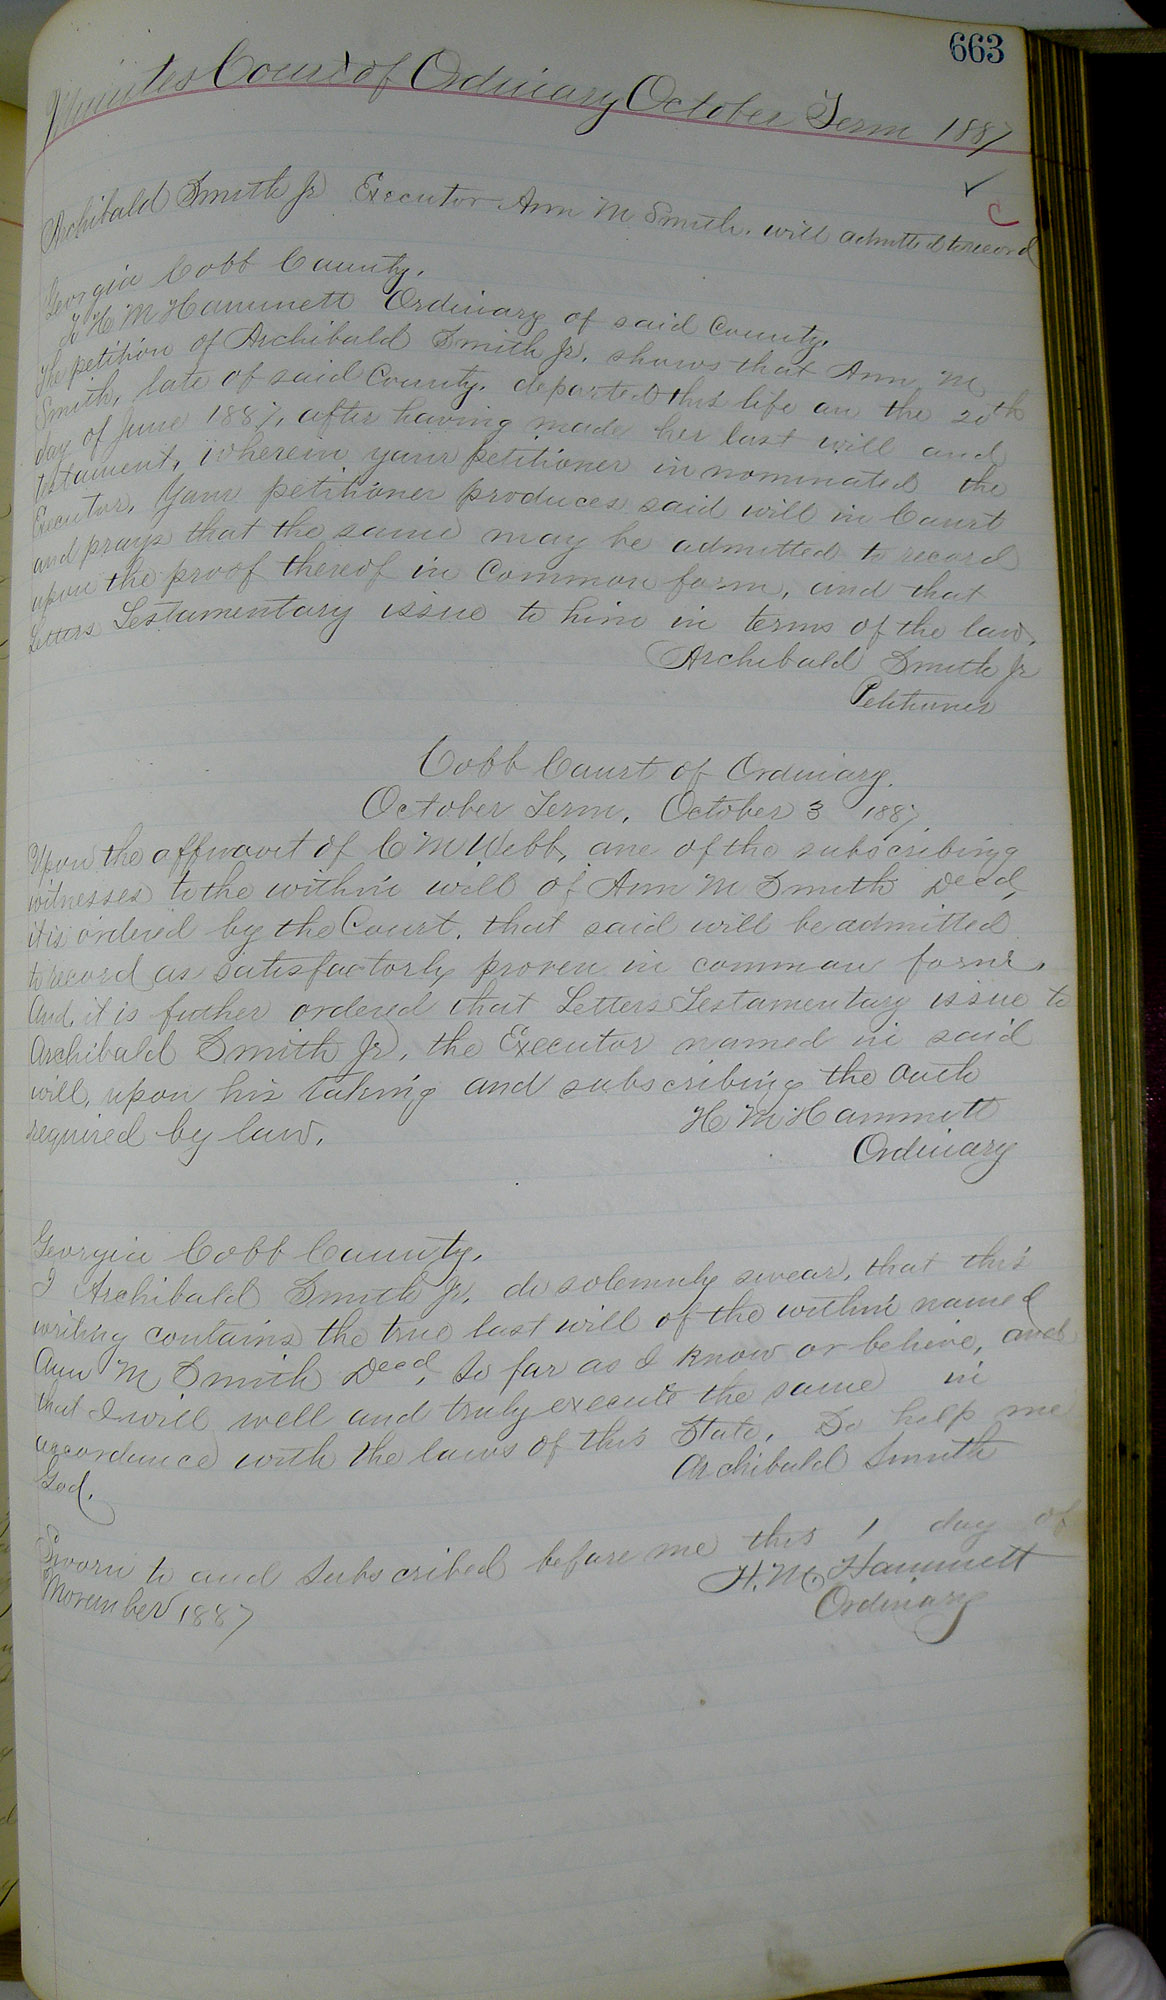 663
Minutes Court of Ordinary October Term 1887
✓
C
Archibald Smith Jr Executor Ann M Smith. will admitted to record
Georgia Cobb County.
To H M Hammett Ordinary of said County.
The petition of Archibald Smith Jr. shows that Ann M
Smith, late of said County. departed this life on the 20th
day of June 1887, after having made her last will and
testament, wherein your petitioner in nominated the
Executor. Your petitioner produces said will in Court
and prays that the same may be admitted to record
upon the proof thereof in Common form, and that
Letters Testamentary issue to him in terms of the law.
Archibald Smith Jr
Petitioner
Cobb Court of Ordinary.
October Term, October 3 1887
Upon the affidavit of C M Webb, one of the subscribing
witnesses to the within will of Ann M Smith Decd,
it is ordered by the Court, that said will be admitted
to record as satisfactorly proven in common form.
And, it is futher ordered that Letters Testamentary issue to
Archibald Smith Jr, the Executor named in said
will, upon his taking and subscribing the oath
required by law.
H M Hammett
Ordinary
Georgia Cobb County,
I Archibald Smith Jr. do solemnly swear, that this
writing contains the true last will of the within named
Ann M Smith Decd, so far as I know or believe, and
that I will well and truly execute the same in
accordance with the laws of this State, So help me
God.
Archibald Smith
Sworn to and Subscribed before me this 1 day of
November 1887
H. M. Hammett
Ordinary